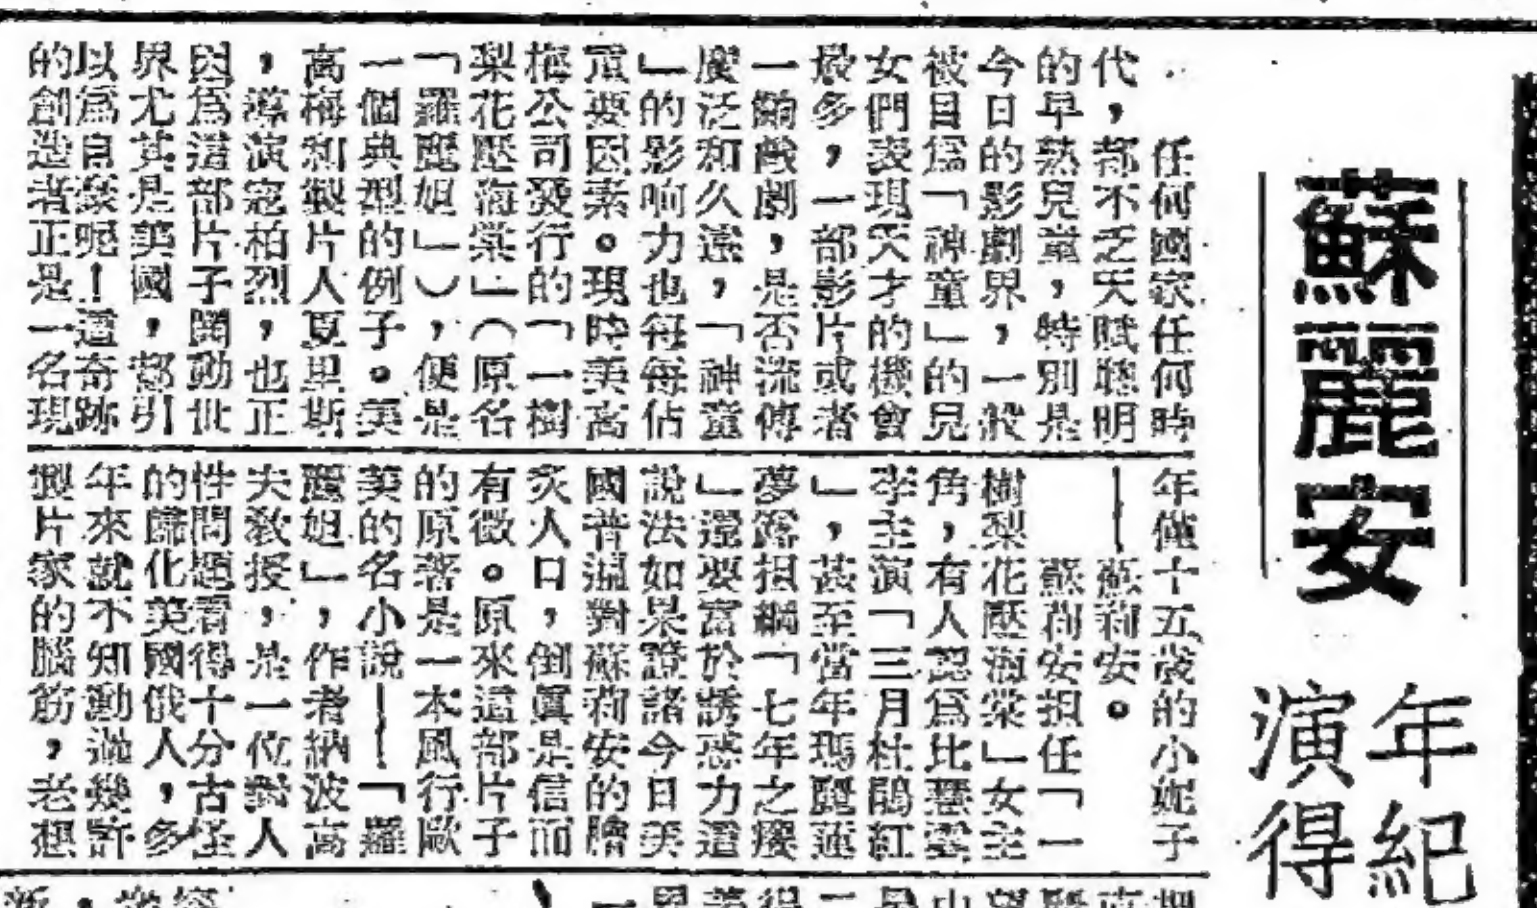 蘇麗安
年紀
演得
任何國家任何時
代，都不乏天賦聰明
的早熟兒童，特別是
今日的影劇界，一般
被目爲「神童」的兒
女們表現天才的機會
最多，一部影片或者
一齣戲劇，是否流傳
廣泛和久遠，「神童
」的影响力也每每佔
重要因素。現時美高
梅公司發行的「一樹
梨花壓海棠」（原名
「羅麗妲」），便是
一個典型的例子。美
高梅和製片人夏里斯
，導演寇柏烈，也正
因爲這部片子鬨動世
界尤其是美國，都引
以爲自豪呢！這奇跡
的創造者正是一名現
年僅十五歲的小妮子
——蘇莉安。
蘇莉安担任「一
樹梨花壓海棠」女主
角，有人認爲比琵雲
李主演「三月杜鵑紅
」，甚至當年瑪麗蓮
夢露担綱「七年之癢
」還要富於誘惑力這
說法如果證諸今日美
國普遍對蘇莉安的膾
炙人口，倒眞是信而
有徵。原來這部片子
的原著是一本風行歐
美的名小說——「羅
麗妲」，作者納波高
夫敎授，是一位對人
性問題看得十分古怪
的歸化美國俄人，多
年來就不知動過幾許
製片家的腦筋，老想